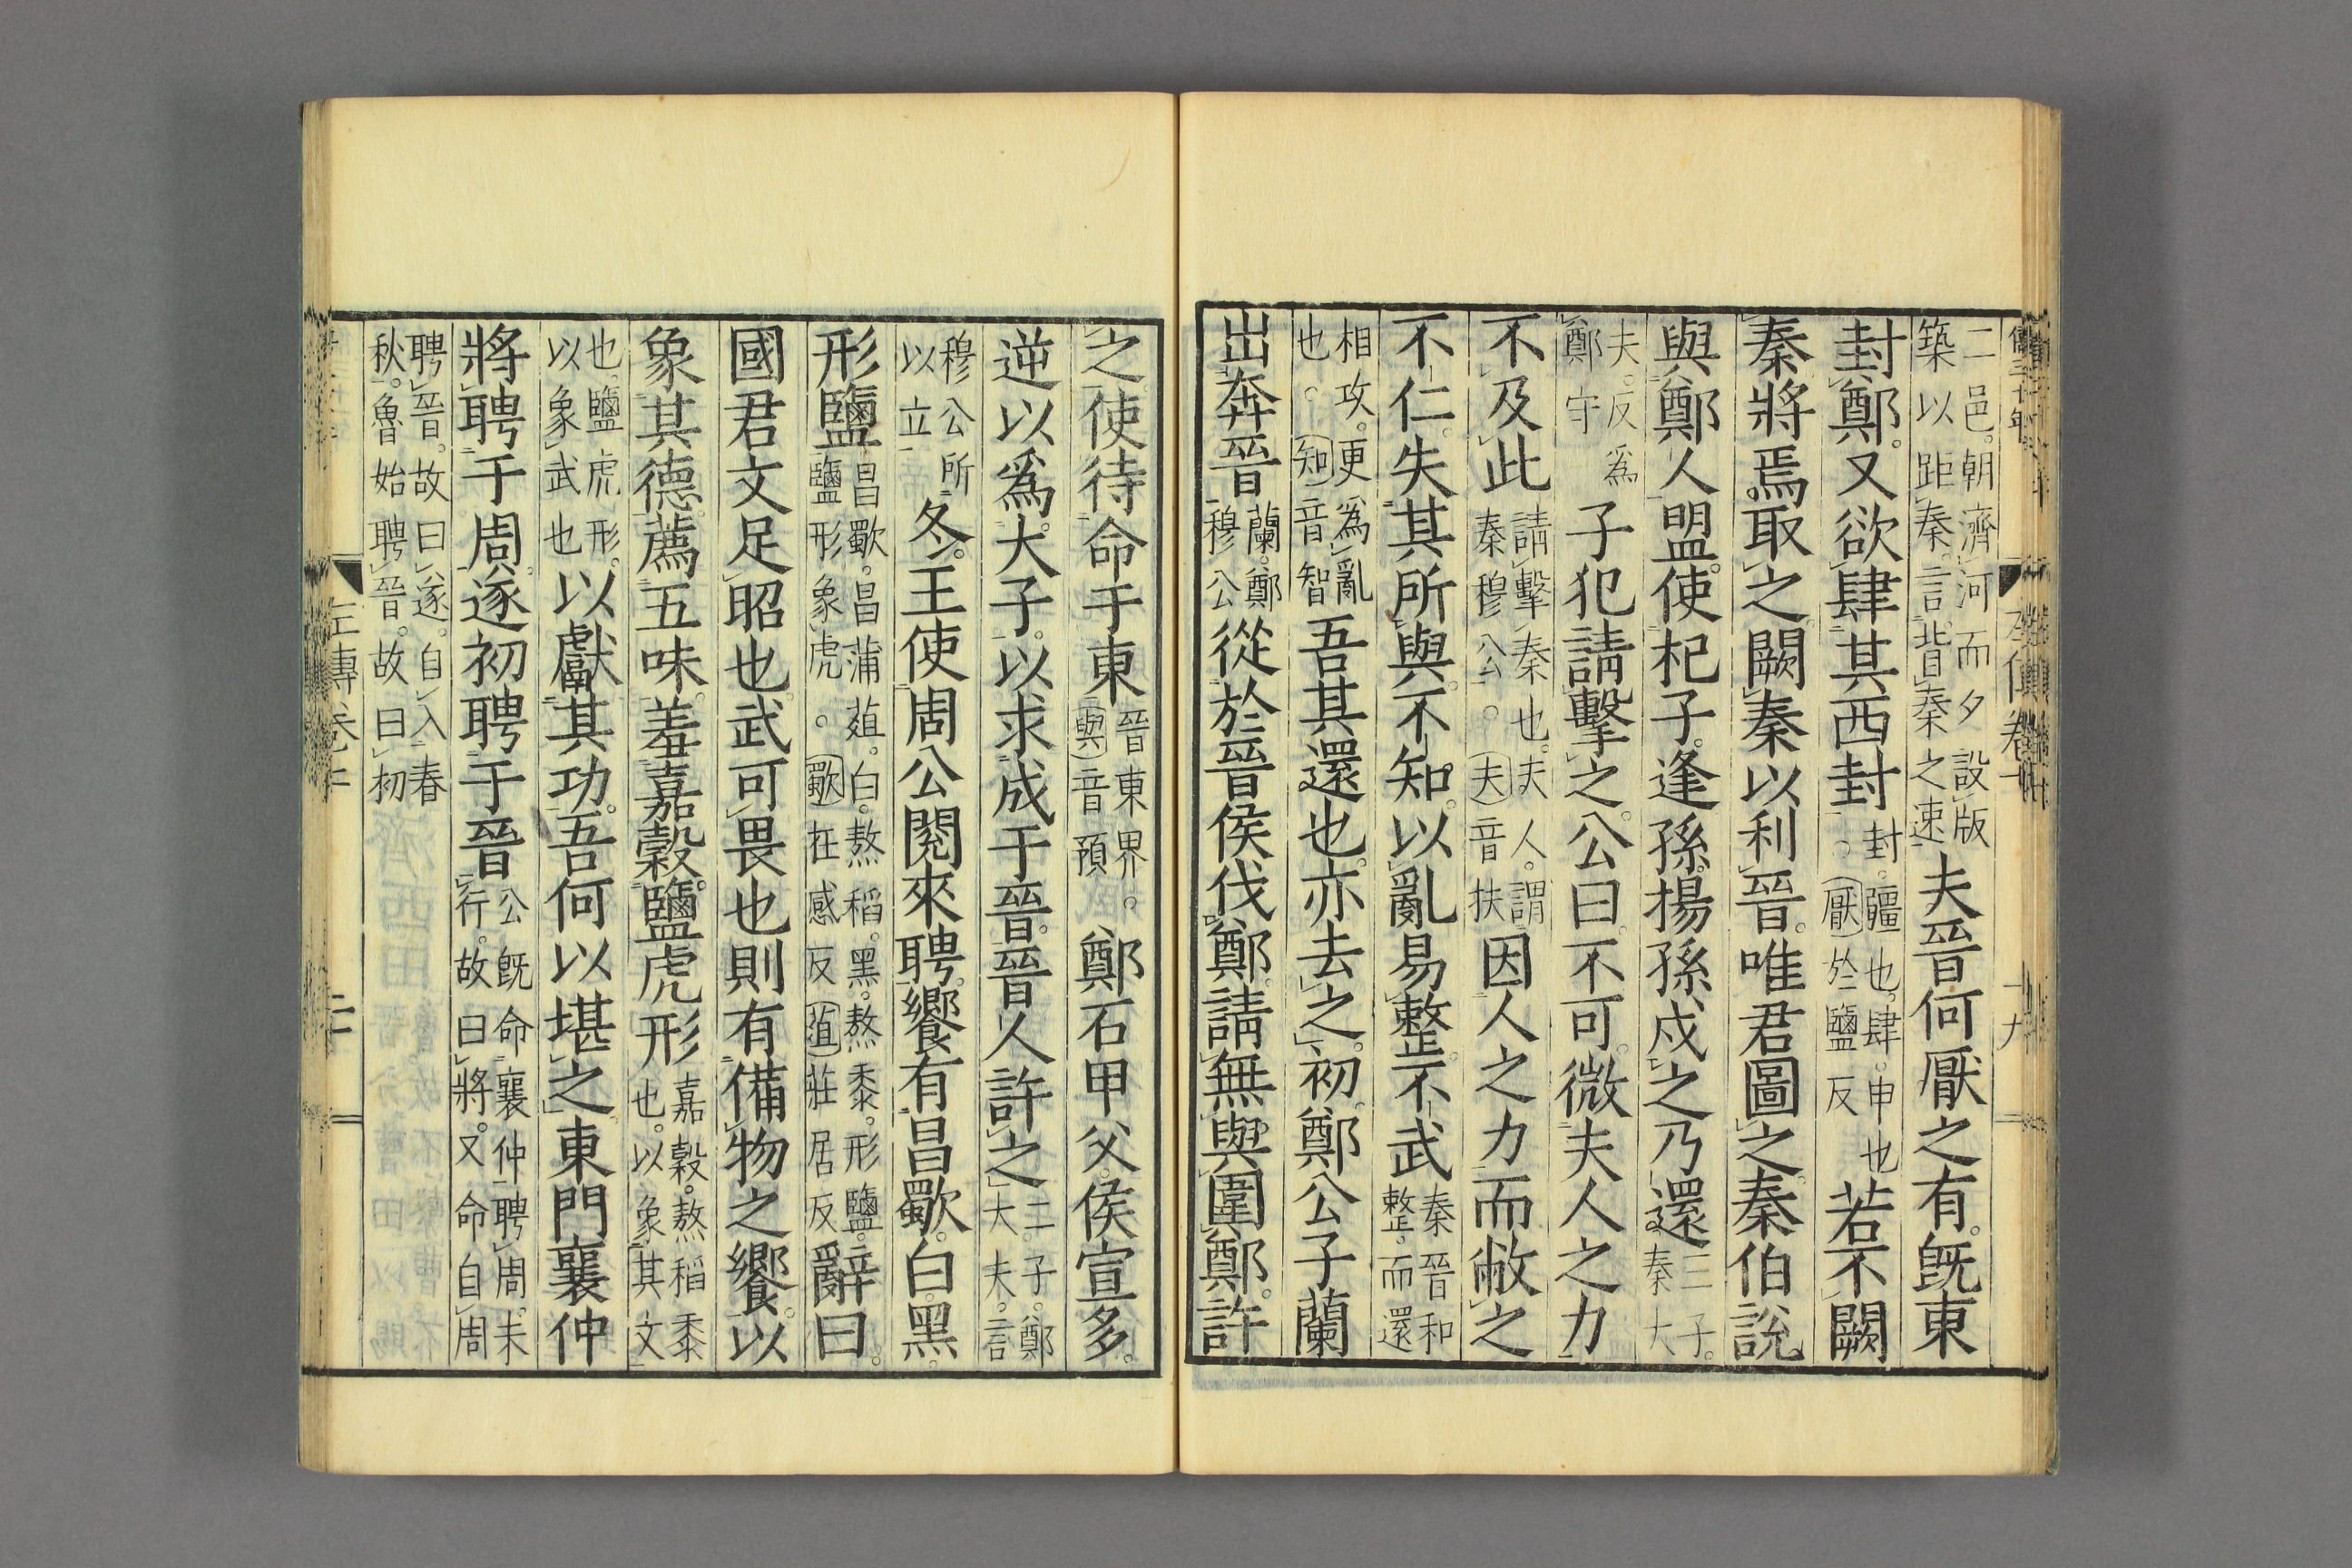 二邑。朝濟河而夕設版築以距秦。言背秦之速夫晉何厭之有。既東
封鄭。又欲肆其西封封。疆也。肆。申也。厭於鹽反若不闕
秦將焉取之闕秦以利晉。唯君圖之秦伯說
與鄭人盟。使杞子。逢孫。揚孫戍之乃還三子。秦大
夫。反爲鄭守子犯請擊之。公曰。不可。微夫人之力
不及此請擊秦也。夫人。謂秦穆公。夫音扶因人之力而敝之
不仁。失其所與。不知。以亂易整。不武秦晉和整。而還
相攻。更爲亂也。知音智吾其還也。亦去之。初。鄭公子蘭
出奔晉蘭。鄭穆公從於晉侯伐鄭。請無與圍鄭。許
之。使待命于東晉東界。與音預鄭石甲父。侯宣多。
逆以爲大子。以求成于晉。晉人許之二子。鄭大夫。言
穆公所以立冬。王使周公閱來聘。饗有昌歜。白。黑。
形鹽昌歜。昌蒲葅。白。熬稻。黑。熬黍。形鹽。鹽形象虎。歜在感反葅莊居反辭曰。
國君文足昭也。武可畏也則有備物之饗。以
象其德。薦五味。羞嘉穀。鹽虎形嘉穀。熬稻黍也。以象其文
也鹽虎形。以象武也以獻其功。吾何以堪之東門襄仲
將聘于周。遂初聘于晉公既命襄仲聘周。未行。故曰將。又命自周
聘晉。故曰遂。自入春秋。魯始聘晉。故曰初